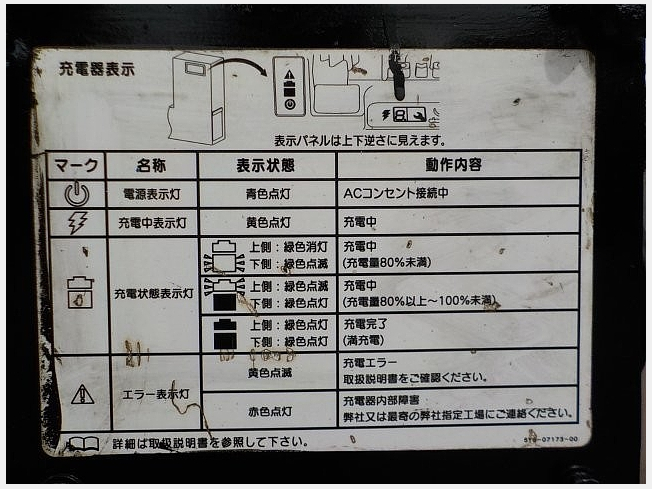 充電器表示
表示パネルは上下逆さに見えます。
マーク 名称 表示状態 動作内容
電源表示灯 青色点灯 ACコンセント接続中
充電中表示灯 黄色点灯 充電中
充電状態表示灯
上側：緑色消灯 充電中
下側：緑色点滅 (充電量80%未満)
上側：緑色点滅 充電中
下側：緑色点灯 (充電量80%以上～100%未満)
上側：緑色点灯 充電完了
下側：緑色点灯 (満充電)
エラー表示灯
黄色点滅 充電エラー
取扱説明書をご確認ください。
赤色点灯 充電器内部障害
弊社又は最寄の弊社指定工場にご連絡ください。
詳細は取扱説明書を参照して下さい。